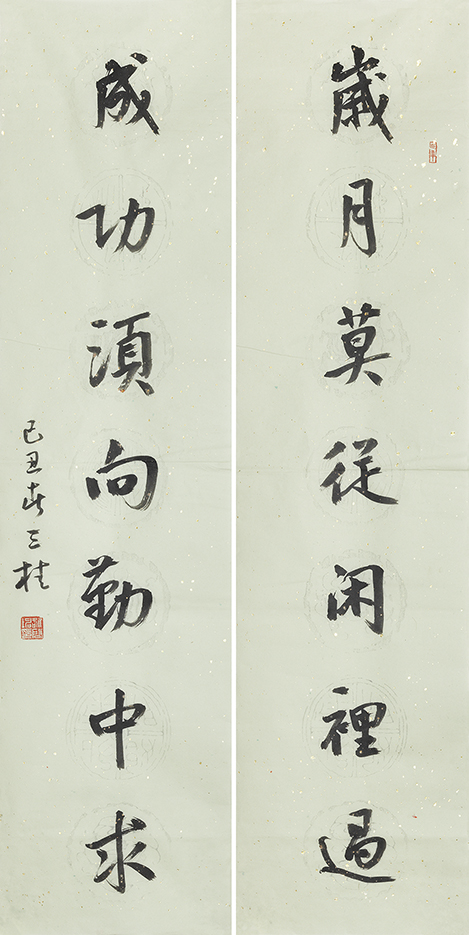 歲月莫從闲裡過
成功須向勤中求
己丑春三桂